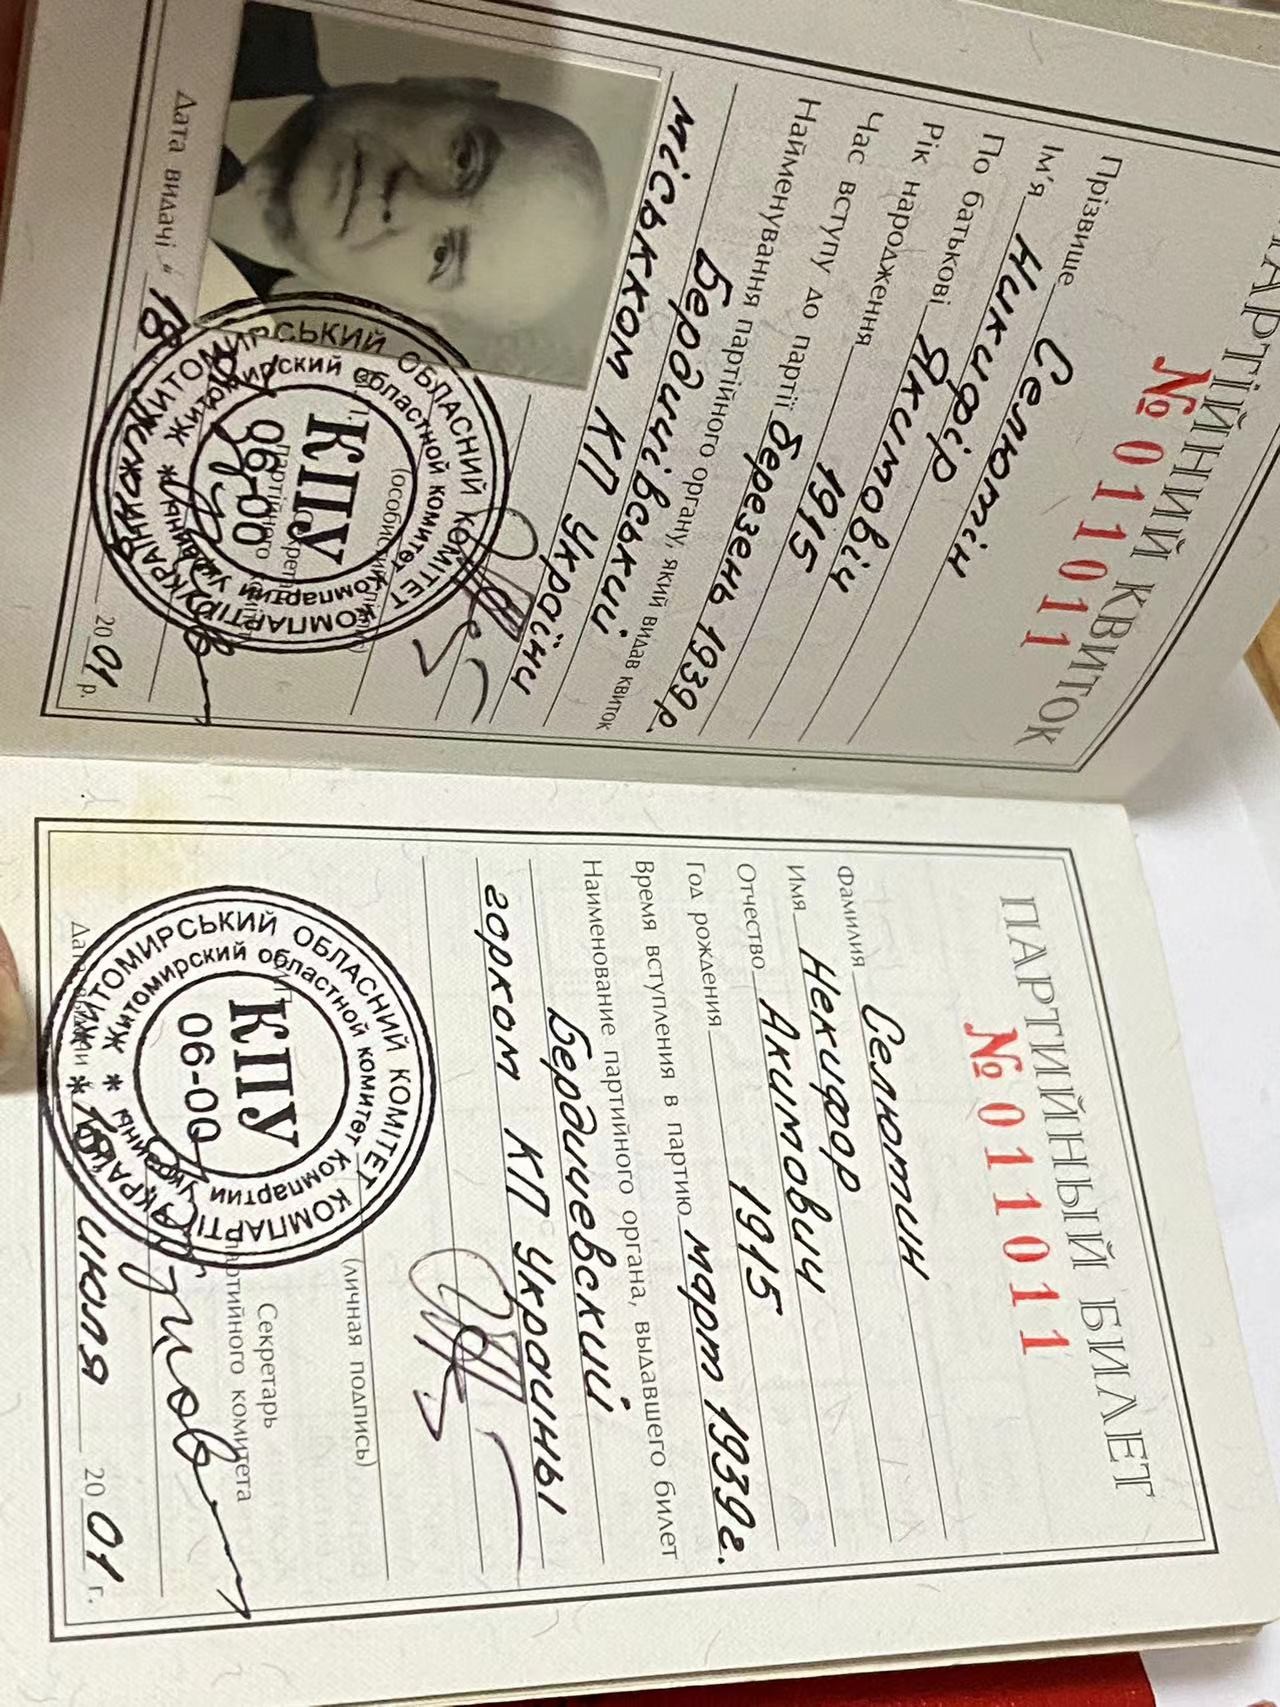 ПАРТІЙНИЙ КВИТОК
№ 011011
Прізвище Селютін
Ім'я Никифір
По батькові Якимовіч
Рік народження 1915
Час вступу до партії березень 1939 р.
Найменування партійного органу, який видав квиток
Бердичівський
міськком КП України
(особистий
Дата видачі " 18
липня
20 01 р.
ЖИТОМИРСЬКИЙ ОБЛАСНИЙ КОМІТЕТ КОМПАРТІЇ УКРАЇНИ
Житомирский областной комитет Компартии Украины
КПУ
06-00
ПАРТИЙНЫЙ БИЛЕТ
№ 011011
Фамилия Селютин
Имя Некифор
Отчество Акимович
Год рождения 1915
Время вступления в партию март 1939 г.
Наименование партийного органа, выдавшего билет
Бердичевский
горком КП Украины
(личная подпись)
Секретарь
партийного комитета
М.П.
Дата выдачи " 18 " июля 20 01 г.
ЖИТОМИРСЬКИЙ ОБЛАСНИЙ КОМІТЕТ КОМПАРТІЇ УКРАЇНИ
Житомирский областной комитет Компартии Украины
КПУ
06-00